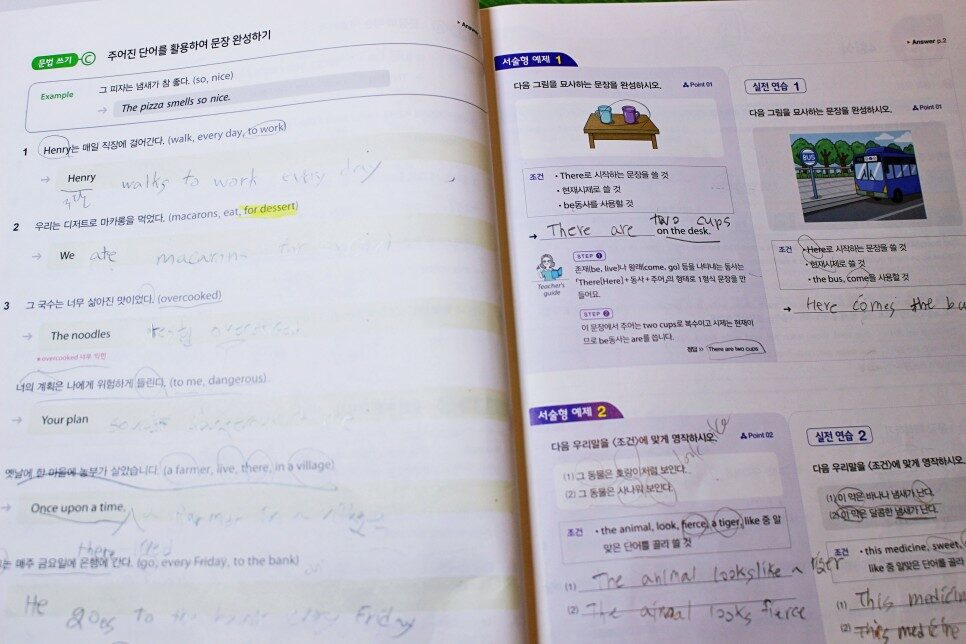 문법 쓰기 C 주어진 단어를 활용하여 문장 완성하기
▸Answer
Example 그 피자는 냄새가 참 좋다. (so, nice)
→ The pizza smells so nice.
1 Henry는 매일 직장에 걸어간다. (walk, every day, to work)
→ Henry walks to work every day
2 우리는 디저트로 마카롱을 먹었다. (macarons, eat, for dessert)
→ We ate macarins
3 그 국수는 너무 삶아진 맛이었다. (overcooked)
→ The noodles
*overcooked 너무 익힌
너의 계획은 나에게 위험하게 들린다. (to me, dangerous)
→ Your plan
옛날에 한 마을에 농부가 살았습니다. (a farmer, live, there, in a village)
→ Once upon a time,
there lived
는 매주 금요일에 은행에 간다. (go, every Friday, to the bank)
He goes to the bank every Friday
▸Answer p.2
서술형 예제 1
다음 그림을 묘사하는 문장을 완성하시오. Point 01
조건 • There로 시작하는 문장을 쓸 것
• 현재시제로 쓸 것
• be동사를 사용할 것
→ There are two cups on the desk.
Teacher's guide
STEP 1
존재(be, live)나 왕래(come, go) 등을 나타내는 동사는
「There[Here]+동사+주어」의 형태로 1형식 문장을 만
들어요.
STEP 2
이 문장에서 주어는 two cups로 복수이고 시제는 현재이
므로 be동사는 are를 씁니다.
정답 >> There are two cups
실전 연습 1
다음 그림을 묘사하는 문장을 완성하시오.
Point 01
BUS
조건 • Here로 시작하는 문장을 쓸 것
• 현재시제로 쓸 것
• the bus, come을 사용할 것
→ Here comes the bu
서술형 예제 2
다음 우리말을 〈조건〉에 맞게 영작하시오. Point 02
(1) 그 동물은 호랑이처럼 보인다.
(2) 그 동물은 사나워 보인다.
조건 • the animal, look, fierce, a tiger, like 중 알
맞은 단어를 골라 쓸 것
(1) The animal looks like a tiger
(2) The aimal looks fierce
실전 연습 2
다음 우리말을 〈조건〉에 맞게 영작하시오.
(1) 이 약은 바나나 냄새가 난다.
(2) 이 약은 달콤한 냄새가 난다.
조건 • this medicine, sweet,
like 중 알맞은 단어를 골라
(1) This medicin
(2) This medicine